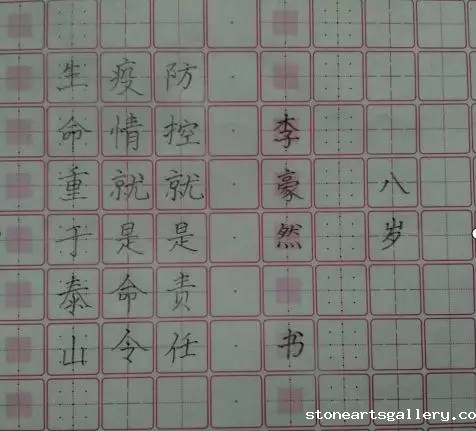 生命重于泰山
疫情就是命令
防控就是责任
李豪然 书
八岁
stoneartsgallery.co